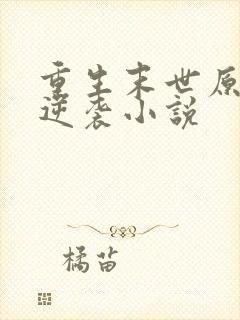 重生末世原
逆袭小说
橘苗